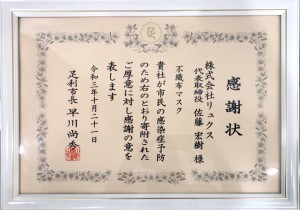 感謝状
株式会社リュクス
代表取締役 佐藤宏樹 様
不織布マスク
貴社が市民の感染症予防
のため右のとおり寄附された
ご厚意に対し感謝の意を
表します
令和三年十月二十一日
足利市長 早川尚秀